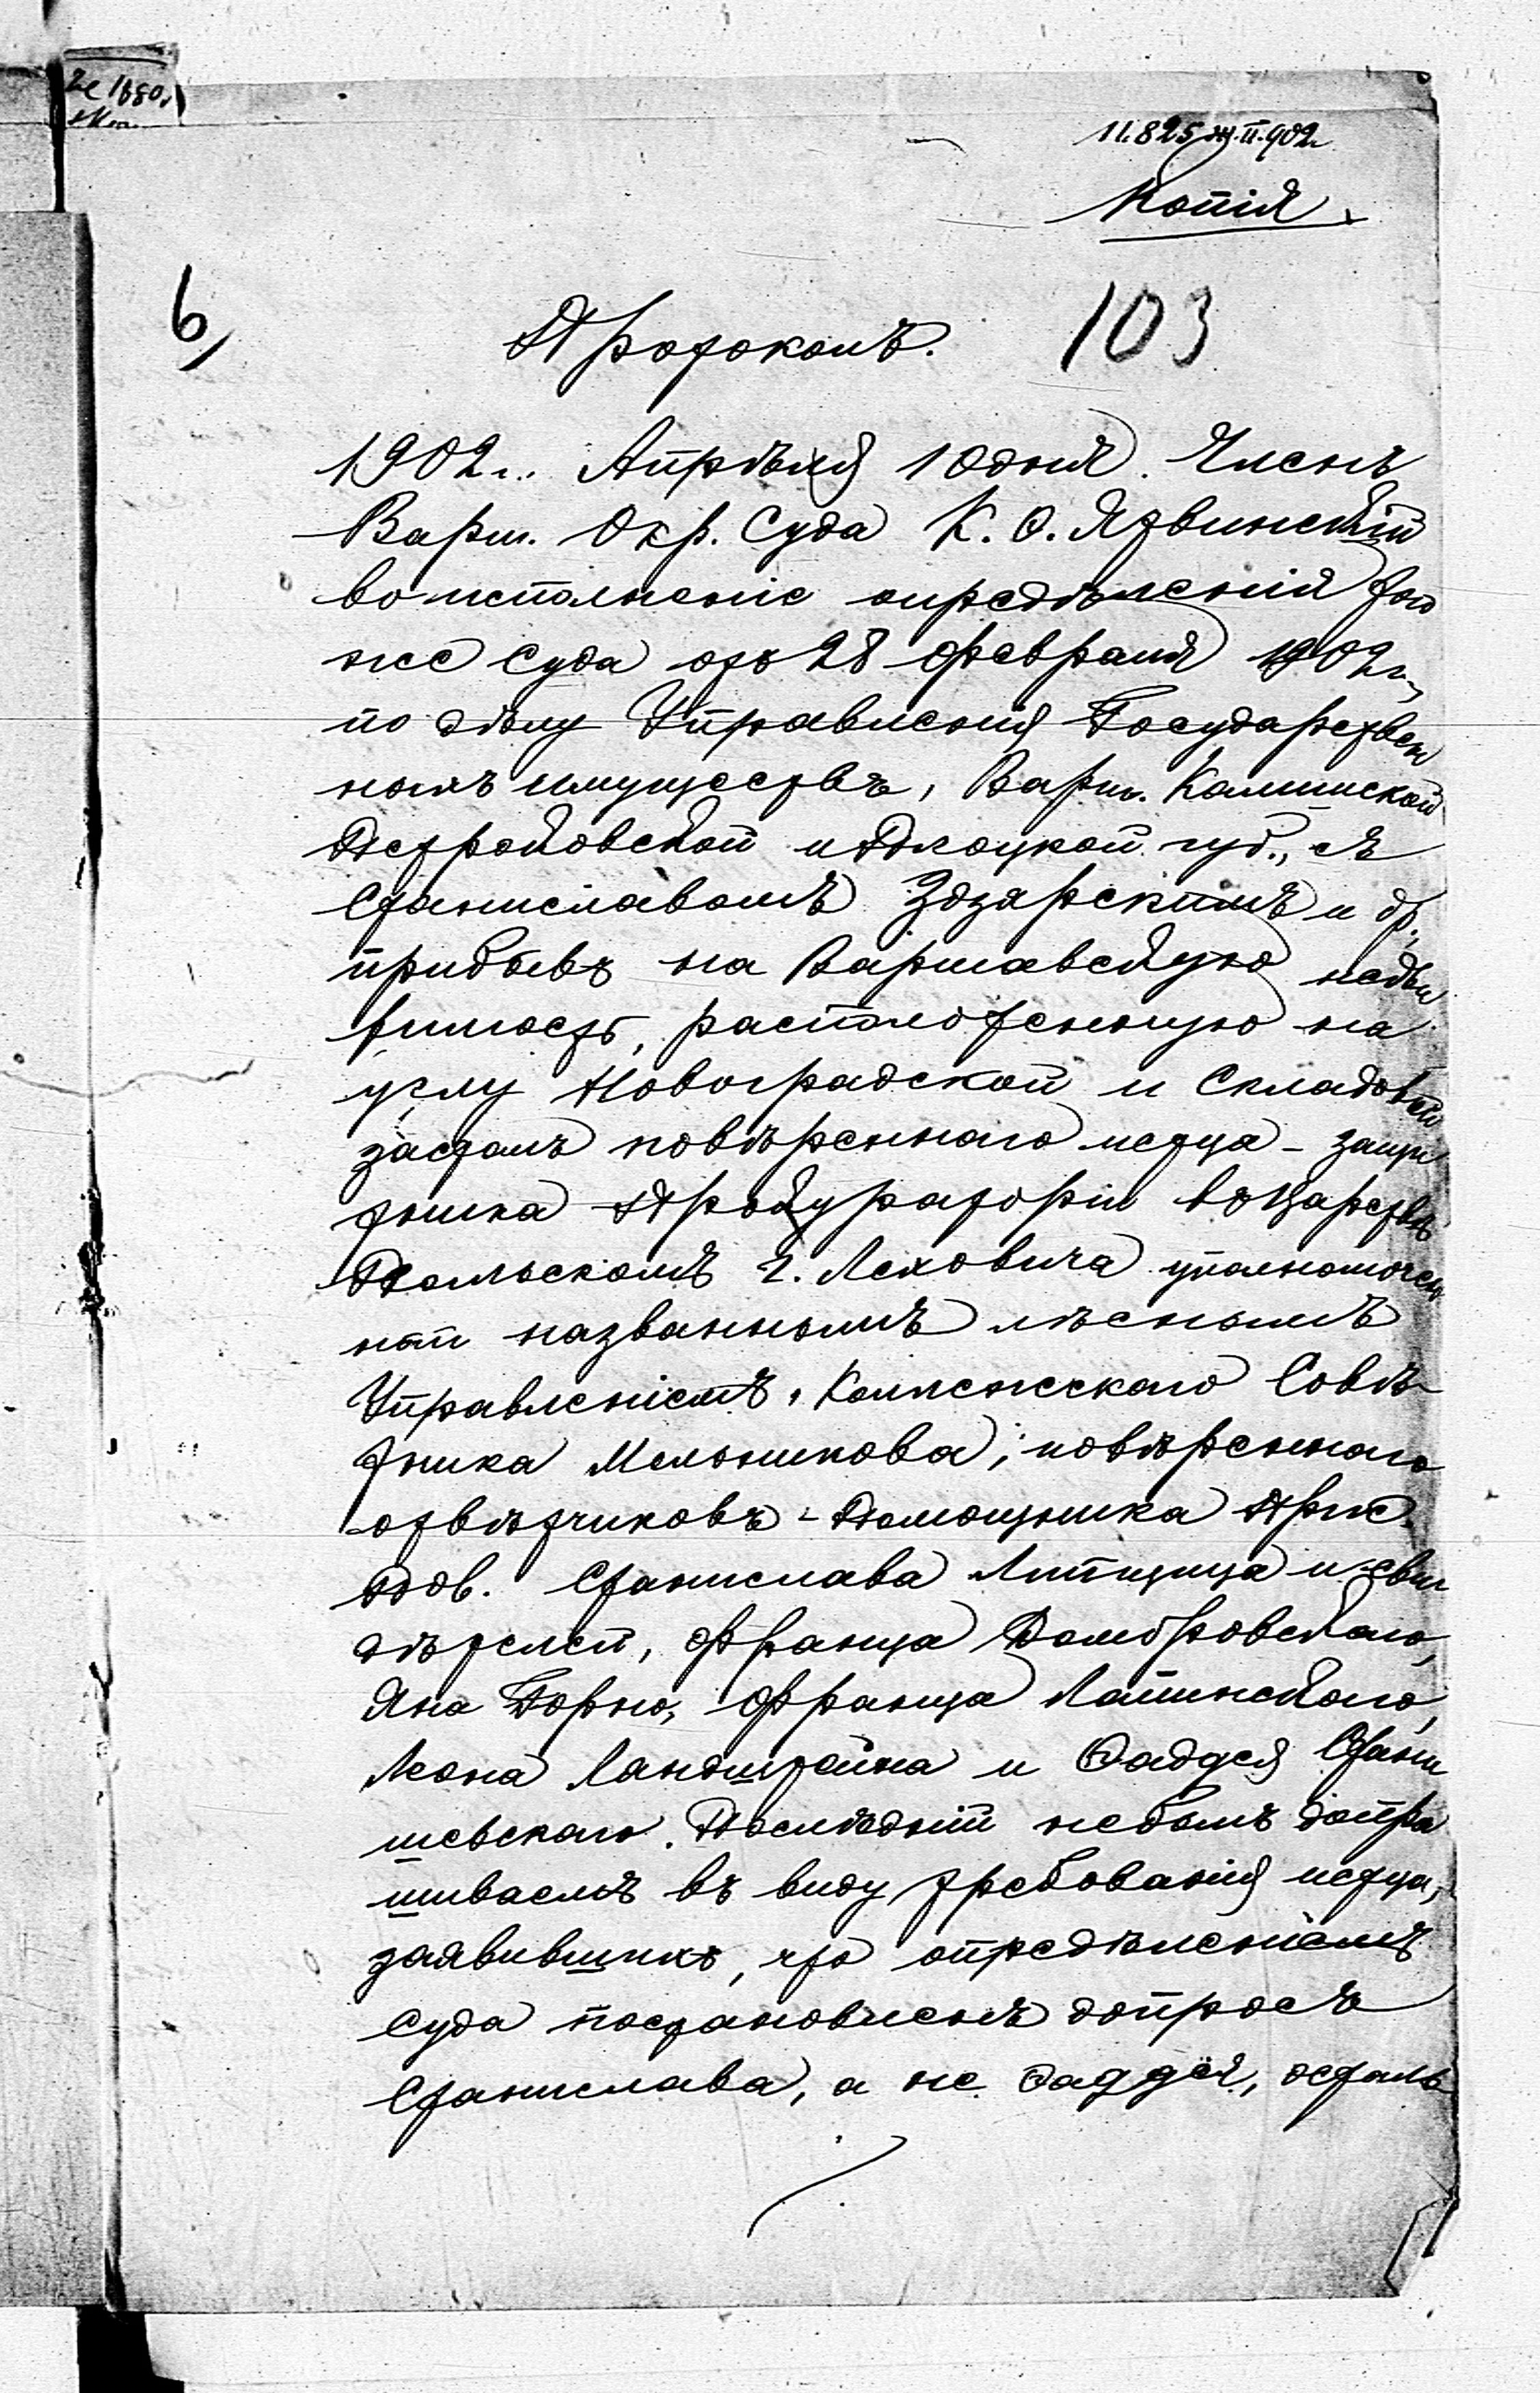 11.825 II.902
Копія
6
103
Протоколъ.
1902 г. Апрѣля 10 дня. Членъ
Варш. Окр. Суда К. О. Язвинскій
во исполненіе опредѣленія того
же Суда отъ 28 февраля 1902 г.,
по дѣлу Управленія Государствен
ныхъ имуществъ, Варш. Калишской
Петроковской и Плоцкой губ., съ
Станиславомъ Здзярскимъ и др.,
прибывъ на Варшавскую недви
жимость, расположенную на
углу Новоградской и Складовой
засталъ повѣреннаго истца - защи
тника Прокураторіи въ Царствѣ
Польскомъ г. Леховича уполномочен
наго названнымъ лѣснымъ
Управленіемъ, Коллежскаго Совѣ-
тника Мельникова; повѣреннаго
отвѣтчиковъ - Помощника Прис.
Пов. Станислава Липщица и сви
дѣтелей, Франца Домбровскаго,
Яна Горно, Франца Лапинскаго,
Леона Ландштейна и Фаддея Стани
шевскаго. Послѣдній не былъ допра
шиваемъ въ виду требованія истца,
заявившихъ, что опредѣленіемъ
Суда постановленъ допросъ
Станислава, а не Фаддея, осталь